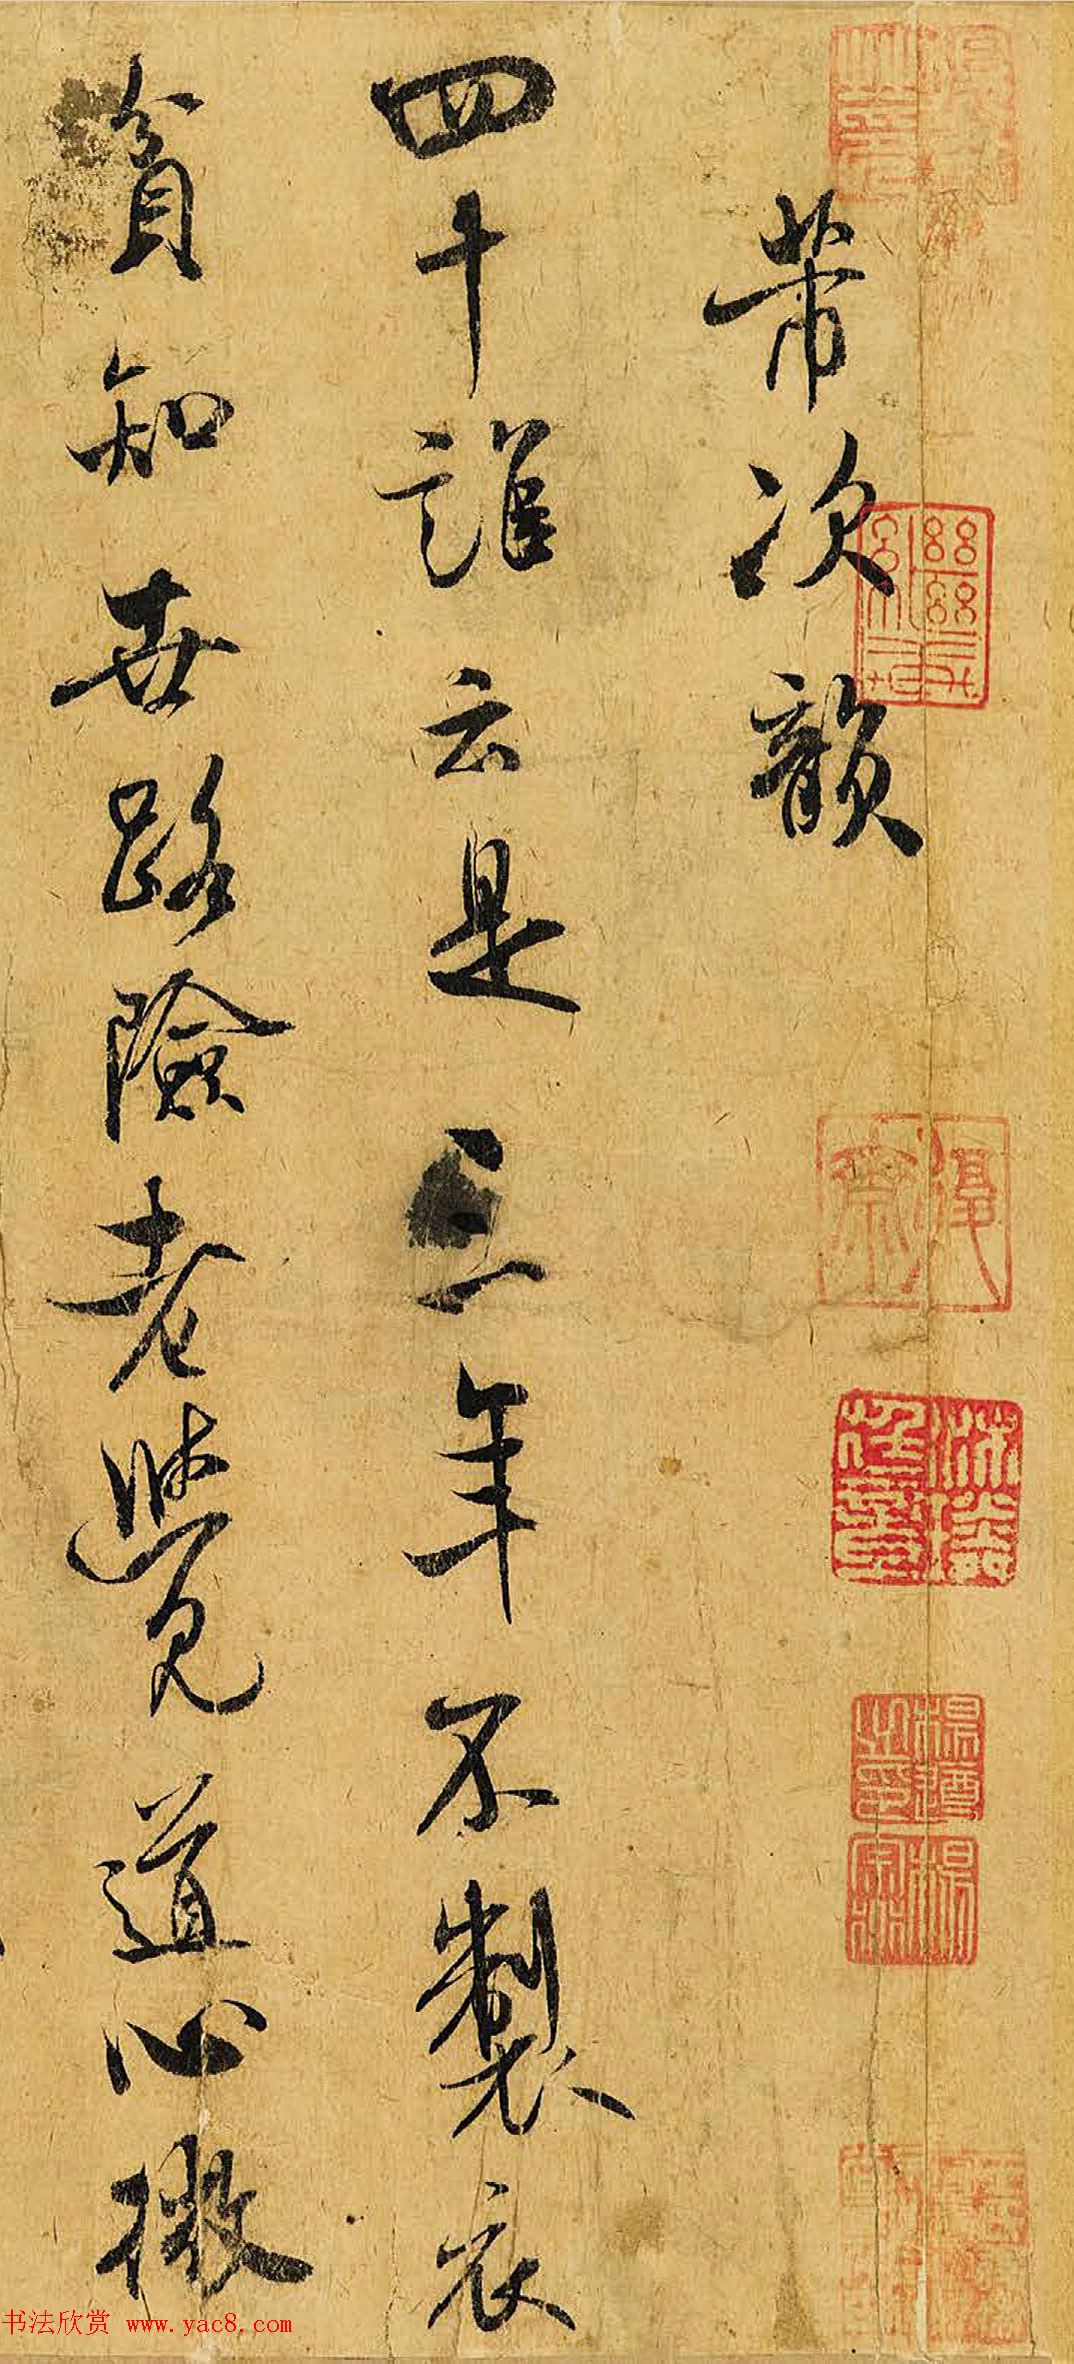 帶次韻
四十誰云是三年不製衣
貧知世路險老覺道心微
书法欣赏 www.yac8.com